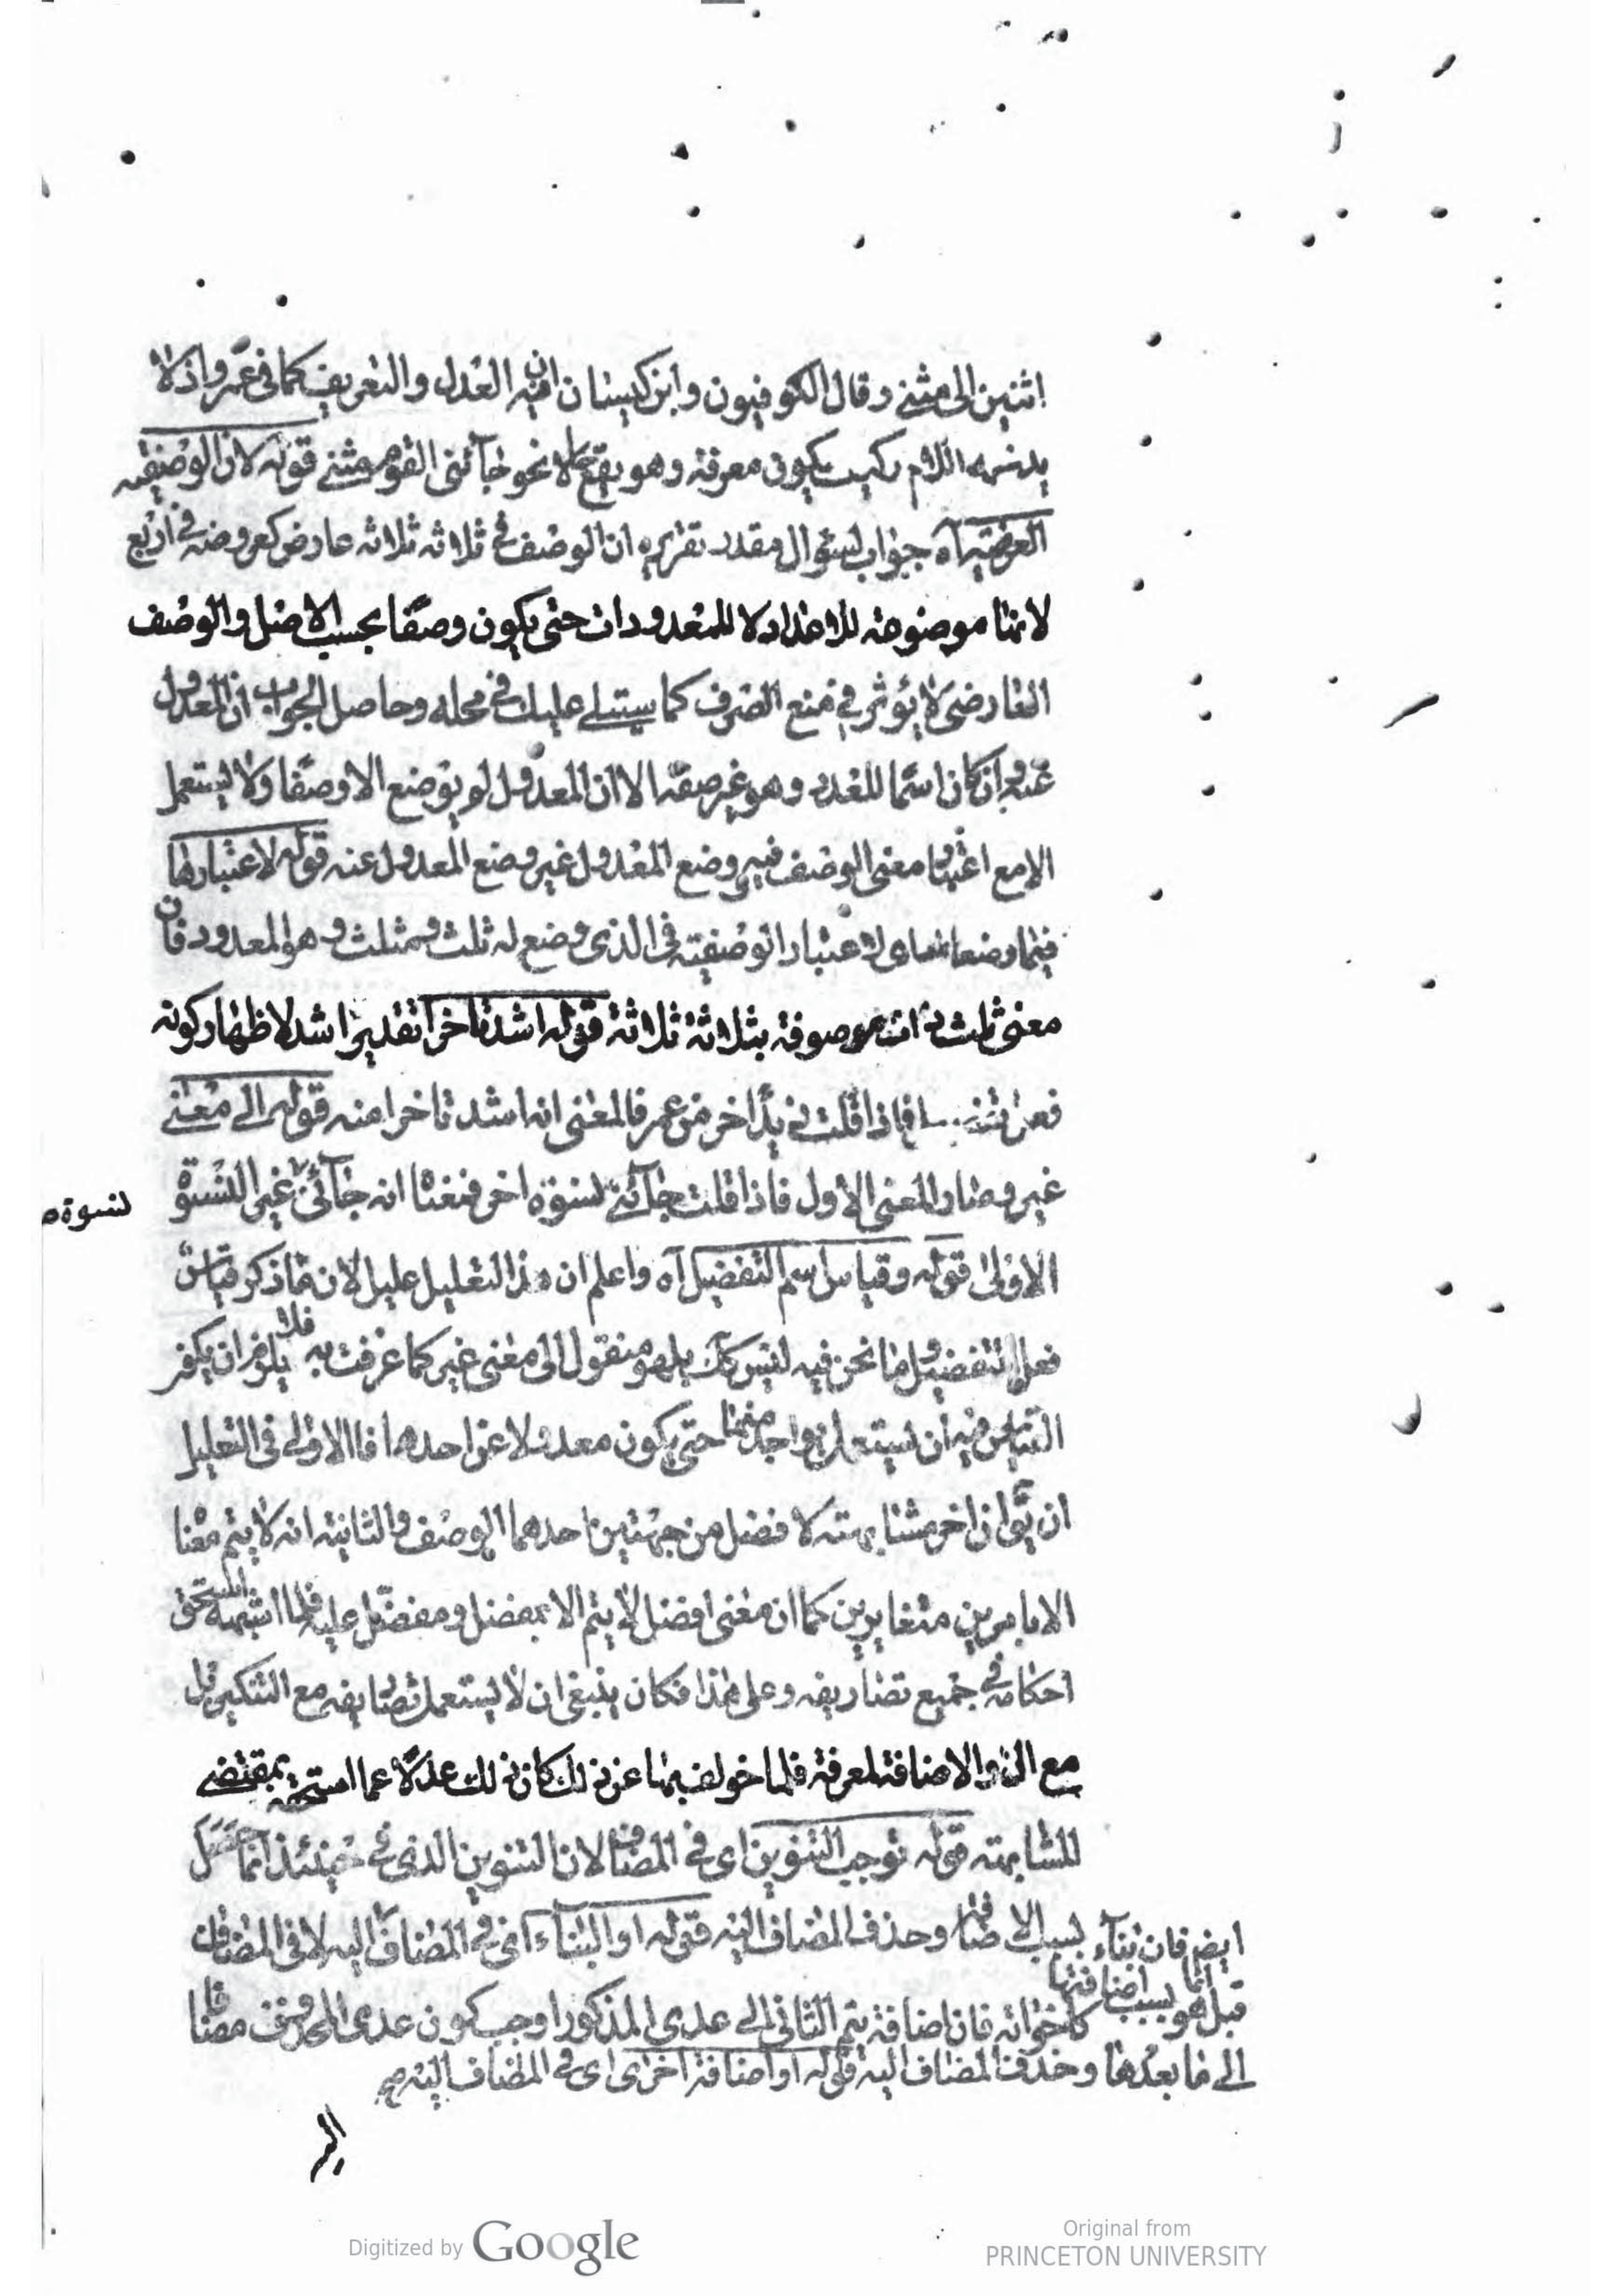 اثنين الى مثنى وقال الكوفيون وابن كيسان ان فيه العدل والتعريف كما في عمر واذ لا
يدخله اللام فكيف يكون معرفة وهو يقع حالا نحو جآئنى القوم مثنى قوله لان الوصفيّة
العرضية آه جواب لسؤال مقدر تقريره ان الوصف فى ثلاثه ثلاثه عارض كعروضه فى اربع
لانها موضوعة للاعداد لا للمعدودات حتى يكون وصفًا بحسب الاصل والوصف
العارضى لا يؤثر فى منع الصرف كما سيتلى عليك فى محله وحاصل الجواب ان المعدول
عنه وان كان اسمًا للعدد وهو غير صفة الا ان المعدول لم يوضع الا وصفًا ولا يستعمل
الا مع اعتبار معنى الوصف فيه ووضع المعدول غير وضع المعدول عنه قوله لاعتبارها
فيما وضعا له اى لاعتبار الوصفية فى الذى وضع له ثلث ومثلث وهو المعدود فان
معنى ثلث ذات موصوفة بثلاثة ثلاثة قوله اشد تاخرا تقدير اشد لاظهار كونه
فاذا قلت زيد آخر من عمر فالمعنى انه اشد تاخرا منه قوله الى معنى
غير وصار المعنى الاول فاذا قلت جآئنى نسوة اخر فمعناه انه جآئنى غير النسوة
نسوة
الاولى قوله وقياس اسم التفضيل آه واعلم ان هذا التعليل عليل لان ما ذكر قياس
فعل التفضيل وما نحن فيه ليس كك بل هو منقول الى معنى غير كما عرفت به فلا يلزم ان يكون
القياس فيه ان يستعمل بواحد منها حتى يكون معدولا عن احدها فاالاولى فى التعليل
ان يقال ان اخر مشابهته لافضل من جهتين احدهما الوصف والثانية انه لا يتم معناه
الا بامرين متغايرين كما ان معنى افضل لا يتم الا بمفضل ومفضل عليه فلما اشبهه استحق
احكامه فى جميع تصاريفه وعلى هذا فكان ينبغى ان لا يستعمل تصاريفه مع التنكير بل
مع ال والاضافة لمعرفة فلما خولف بها عن ذلك كان ذلك عدلا عما استحقه بمقتضى
المشابهته قوله توجب التنوين اى فى المضاف لان التنوين الذى فى حينئذ انما حصل
بسبب الاضافة وحذف المضاف اليه قوله او البناء اى فى المضاف اليه لا فى المضاف
ايضا فان بناء
قبل انما هو بسبب اضافتها
كاخواته فان اضافة تيم الثانى الى عدى المذكور اوجب كون عدى المحذوف مضافا
الى ما بعدها وحذف المضاف اليه قوله او اضافة اخرى اى فى المضاف اليه
Digitized by Google
Original from
PRINCETON UNIVERSITY